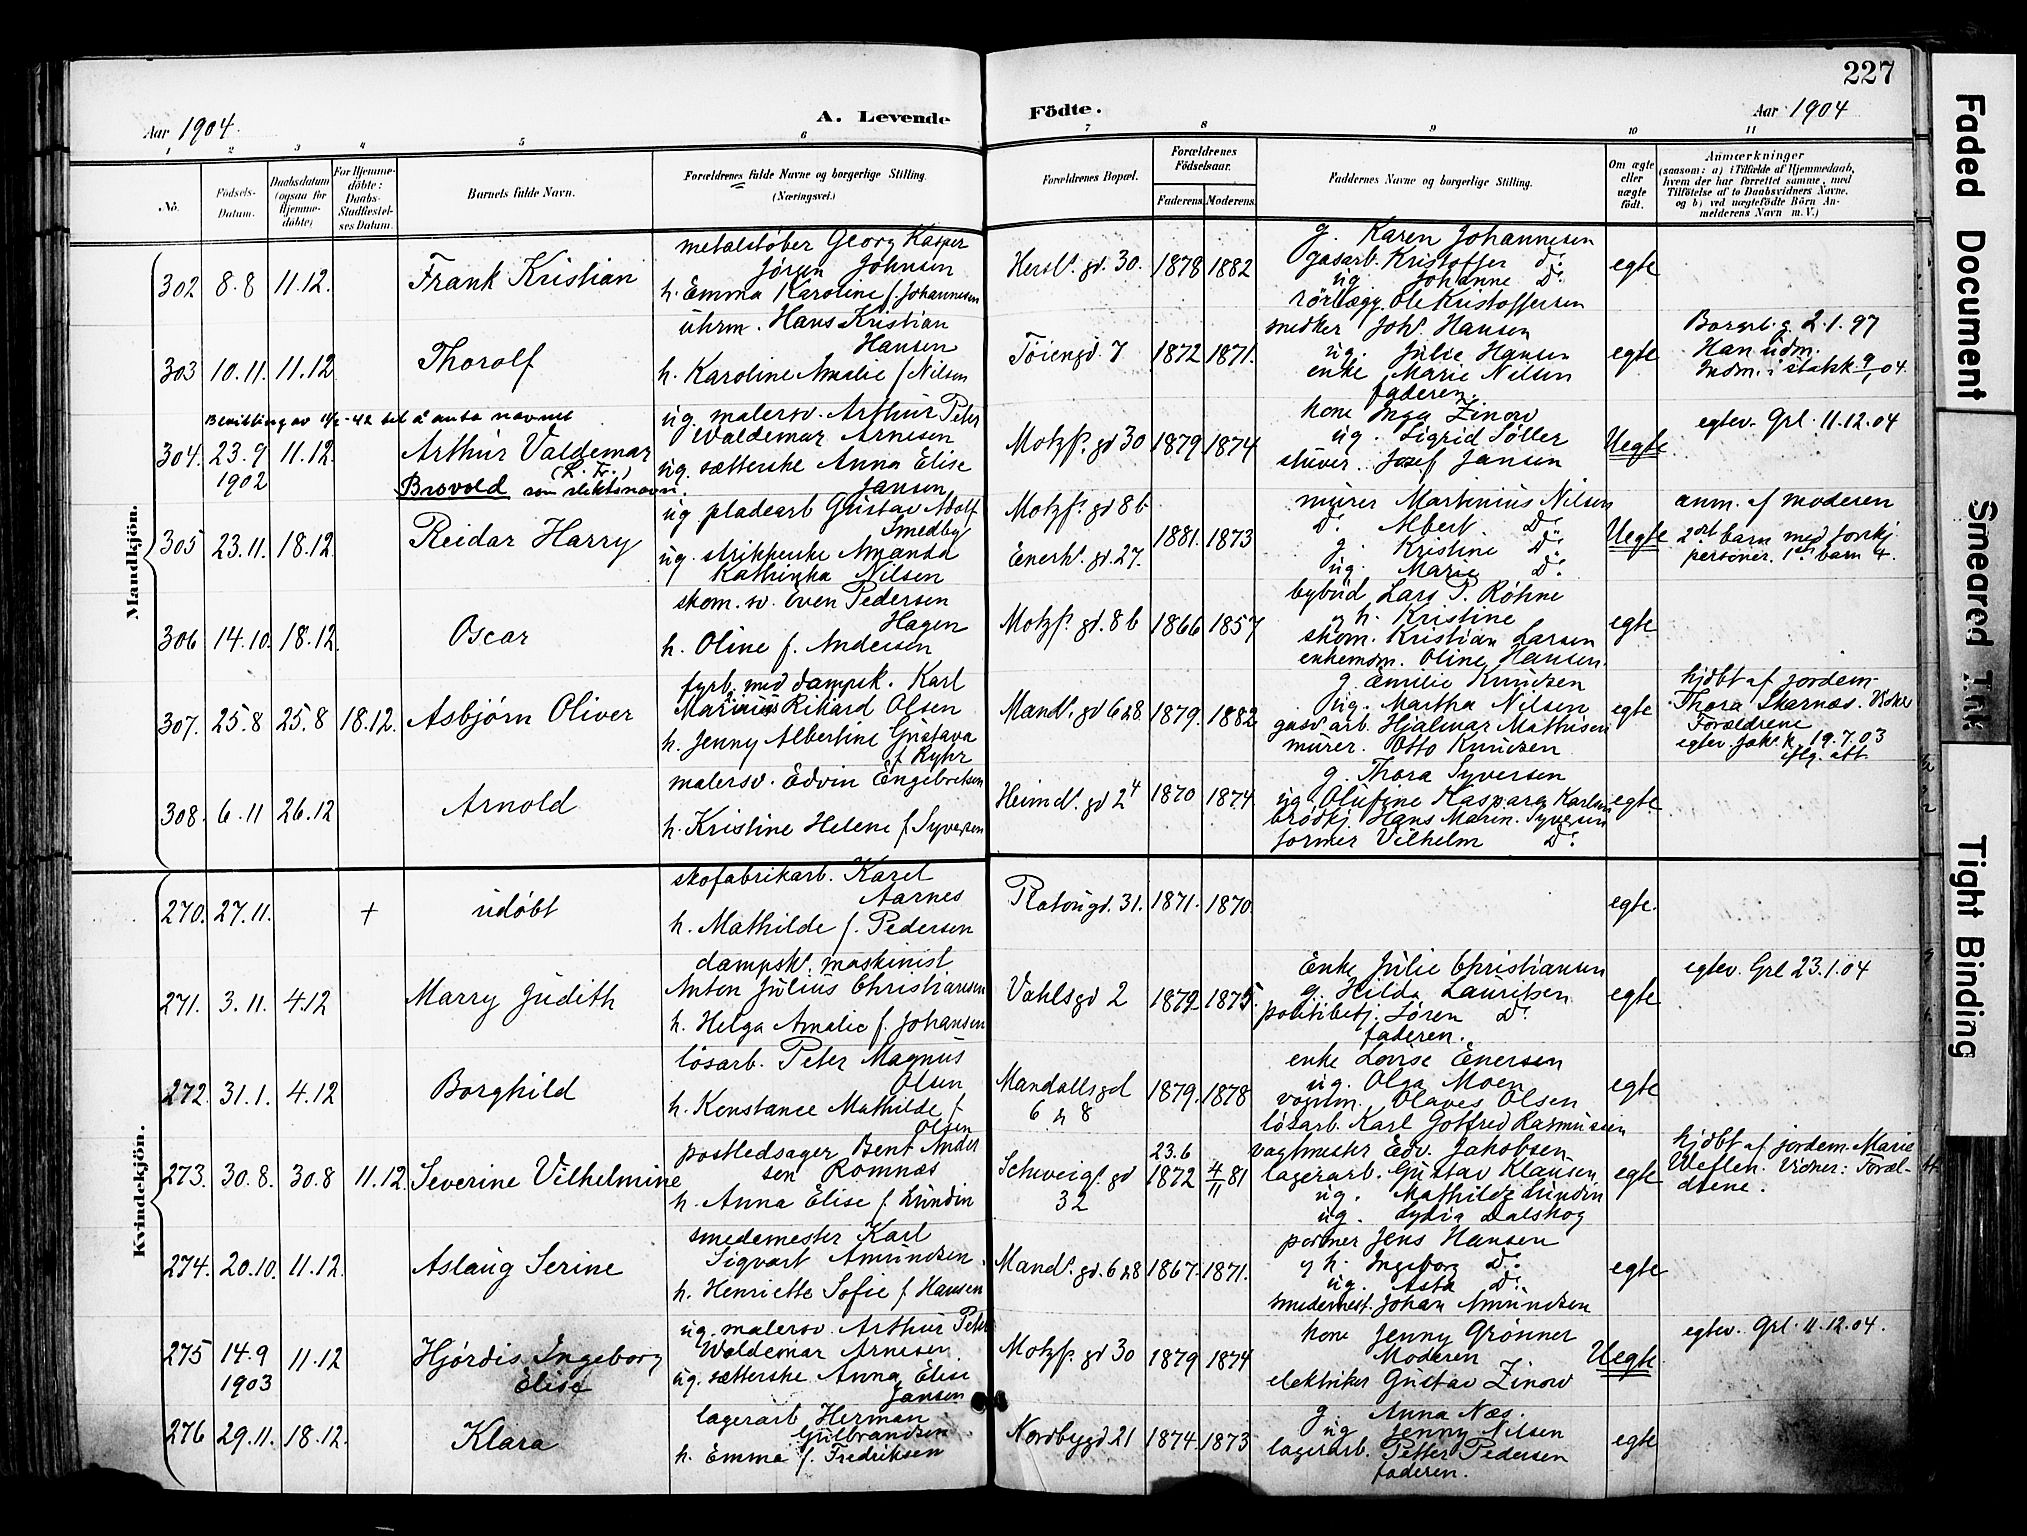 227
Aar 1904.
A. Levende
Födte.
Aar 1904
1 2 3 4 5 6 7 8 9 10 11
No.
Födsels-Datum.
Daabsdatum (ogsaa for Hjemme-döbte)
For Hjemme-döbte: Daabs-Stadfæstel-ses Datum.
Barnets fulde Navn.
Forældrenes fulde Navne og borgerlige Stilling. (Næringsvei.)
Forældrenes Bopæl.
Forældrenes Födselsaar.
Faderens Moderens
Faddernes Navne og borgerlige Stilling.
Om ægte eller uægte födt.
Anmærkninger
(saasom: a) i Tilfælde af Hjemmedaab, hvem der har forrettet samme, med Tilföielse af to Daabsvidners Navne, og b) ved uægtefödte Börn An-melderens Navn m. V.)
Mandkjön.
302 8.8 11.12. Frank Kristian
metalstøber Georg Kasper
Jörgen Johnsen
h. Emma Karoline f. Johannesen
Hersl. gd. 30. 1878 1882
g. Karen Johannesen
gasarb. Kristoffer Do
ug. Johanne Do
rörlægg. Ole Kristoffersen
egte
303 10.11. 11.12 Thorolf
uhrm. Hans Kristian
Hansen
h. Karoline Amalie f Nilsen
Töiengd. 7 1872 1871.
snedker Joh. Hansen
ug. Julie Hansen
enke Marie Nilsen
faderen
egte
Borgerl. g. 2.1.97
Han udm.
Indm. i statsk. 9/1 04.
Bevilling av til å anta navnet
304. 23.9 1902 11.12. Arthur Valdemar
Brovold som slektsnavn.
ug. malersv. Arthur Peter
Waldemar Arnesen
ug. sætterske Anna Elise
Jansen
Motzf. gd 30 1879 1874
kone Inga Zinow
ug. Sigrid Söller
stuver Josef Jansen
Uegte
egtev. Grl. 11.12.04
305 23.11. 18.12. Reidar Harry
ug. pladearb Gustav Adolf
Smedby
ug. strikkerske Amanda
Kathinka Nilsen
Motzf. gd 8b
Enerh. gd. 27. 1881. 1873
murer Martinius Nilsen
Do Albert Do
g. Kristine Do
ug. Marie Do
Uegte
anm. af moderen
2det barn med forskj.
personer. 1ste barn 4.
306 14.10. 18.12. Oscar
skom. sv. Even Pedersen
Hagen
h. Oline f. Andersen
Motzf. gd. 8b 1866 1857
bybud Lars P. Röhne
g h. Kristine
skom. Kristian Larsen
enkemdm. Oline Hansen.
egte
307. 25.8 25.8 18.12. Asbjörn Oliver
fyrb. med dampsk. Karl
Marinius Rikard Olsen
h. Jenny Albertine Gustava
f Ryhr
Mand. gd 6 & 8 1879. 1882
g. Emilie Knudsen
ug. Martha Nilsen
gasv. arb. Hjalmar Mathisen
murer. Otto Knudsen
egte
hjdbt af jordem-
Thora Skarnæs. Vidner
Forældrene
egtev. Jak. k. 19.7.03
iflg. att
308. 6.11 26.12 Arnold
malersv. Edvin Engebretsen
h. Kristine Helene f. Syversen
Heimd. gd 24 1870 1874
g. Thora Syversen
ug. Olufine Kaspara Karlsen
brödkj. Hans Marin. Syversen
former Vilhelm Do
egte
Kvindekjön.
270. 27.11. + udöbt
skofabrikarb. Karel
Aarnes
h. Mathilde f. Pedersen
Platougd. 31. 1871. 1870.
egte.
271. 3.11. 4.12 Marry Judith
dampsk. maskinist
Anton Julius Christiansen
h. Helga Amalie f. Johansen
Vahlsgd 2 1879. 1875.
Enke Julie Christiansen
g. Hilda Lauritsen
politibetj. Sören Do
faderen.
egte
egtev. Grl 23.1.04
272. 31.1. 4.12 Borghild
lösarb. Peter Magnus
Olsen
h. Konstance Mathilde f.
Olsen
Mandallsgd
6 & 8 1879. 1878
enke Lovise Enersen
ug. Olga Moen
vognm. Olaves Olsen
lösarb. Karl Gotfred Rasmussen
egte
273. 30.8. 30.8 11.12. Severine Vilhelmine
postledsager Bent Ander
sen Romnæs
h. Anna Elise f. Lundin
Schweig. gd
32
23.6
1872 4/11 81
vagtmester Edv. Jakobsen
lagerarb. Gustav Klausen
ug. Mathilde Lundin
ug. Lydia Dalskog
egte
hjdbt af jordem. Marie
Uleflen. Vidner: Foræl-
drene.
274. 20.10. 11.12. Aslaug Serine
smedemester Karl
Sigvart Amundsen.
h. Henriette Sofie f Hansen
Mand. gd. 6&8 1867. 1871.
portner Jens Hansen
g h. Ingeborg Do
ug. Asta Do
smedemest. Johan Amundsen
egte
275 14.9 1903 11.12 Hjördis Ingeborg
Elise
ug. malersv. Arthur Peter
Waldemar Arnesen
ug. sætterske Anna Elise
Jansen
Motzf. gd 30 1879 1874
kone Jenny Grönner
Moderen
elektriker Gustav Zinow
Uegte.
egtev. Grl. 11.12.04.
276 29.11. 18.12. Klara
lagerarb Herman
Gulbrandsen
h. Emma f. Fredriksen
Nordbygd 21 1874 1873
g Anna Næs.
ug Jenny Nilsen
lagerarb. Petter Pedersen
faderen.
egte
Faded Document
Smeared Ink
Tight Binding